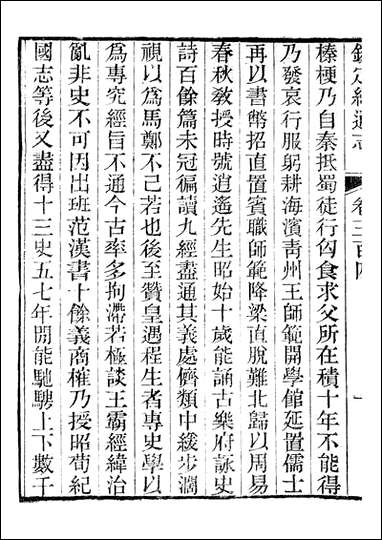 欽定續通志　卷三百四　一
榛梗乃自秦抵蜀徒行匄食求父所在積十年不能得
乃發哀行服躬耕海濱青州王師範開學館延置儒士
再以書幣招直置賓職師範降梁直脫難北歸以周易
春秋教授時號逍遙先生昭始十歲能誦古樂府詠史
詩百餘篇未冠徧讀九經盡通其義處儕類中緩步濶
視以為馬鄭不己若也後至贊皇遇程生者專史學以
為專究經旨不通今古率多拘滯若極談王霸經緯治
亂非史不可因出班范漢書十餘義商榷乃授昭荀紀
國志等後又盡得十三史五七年閒能馳騁上下數千